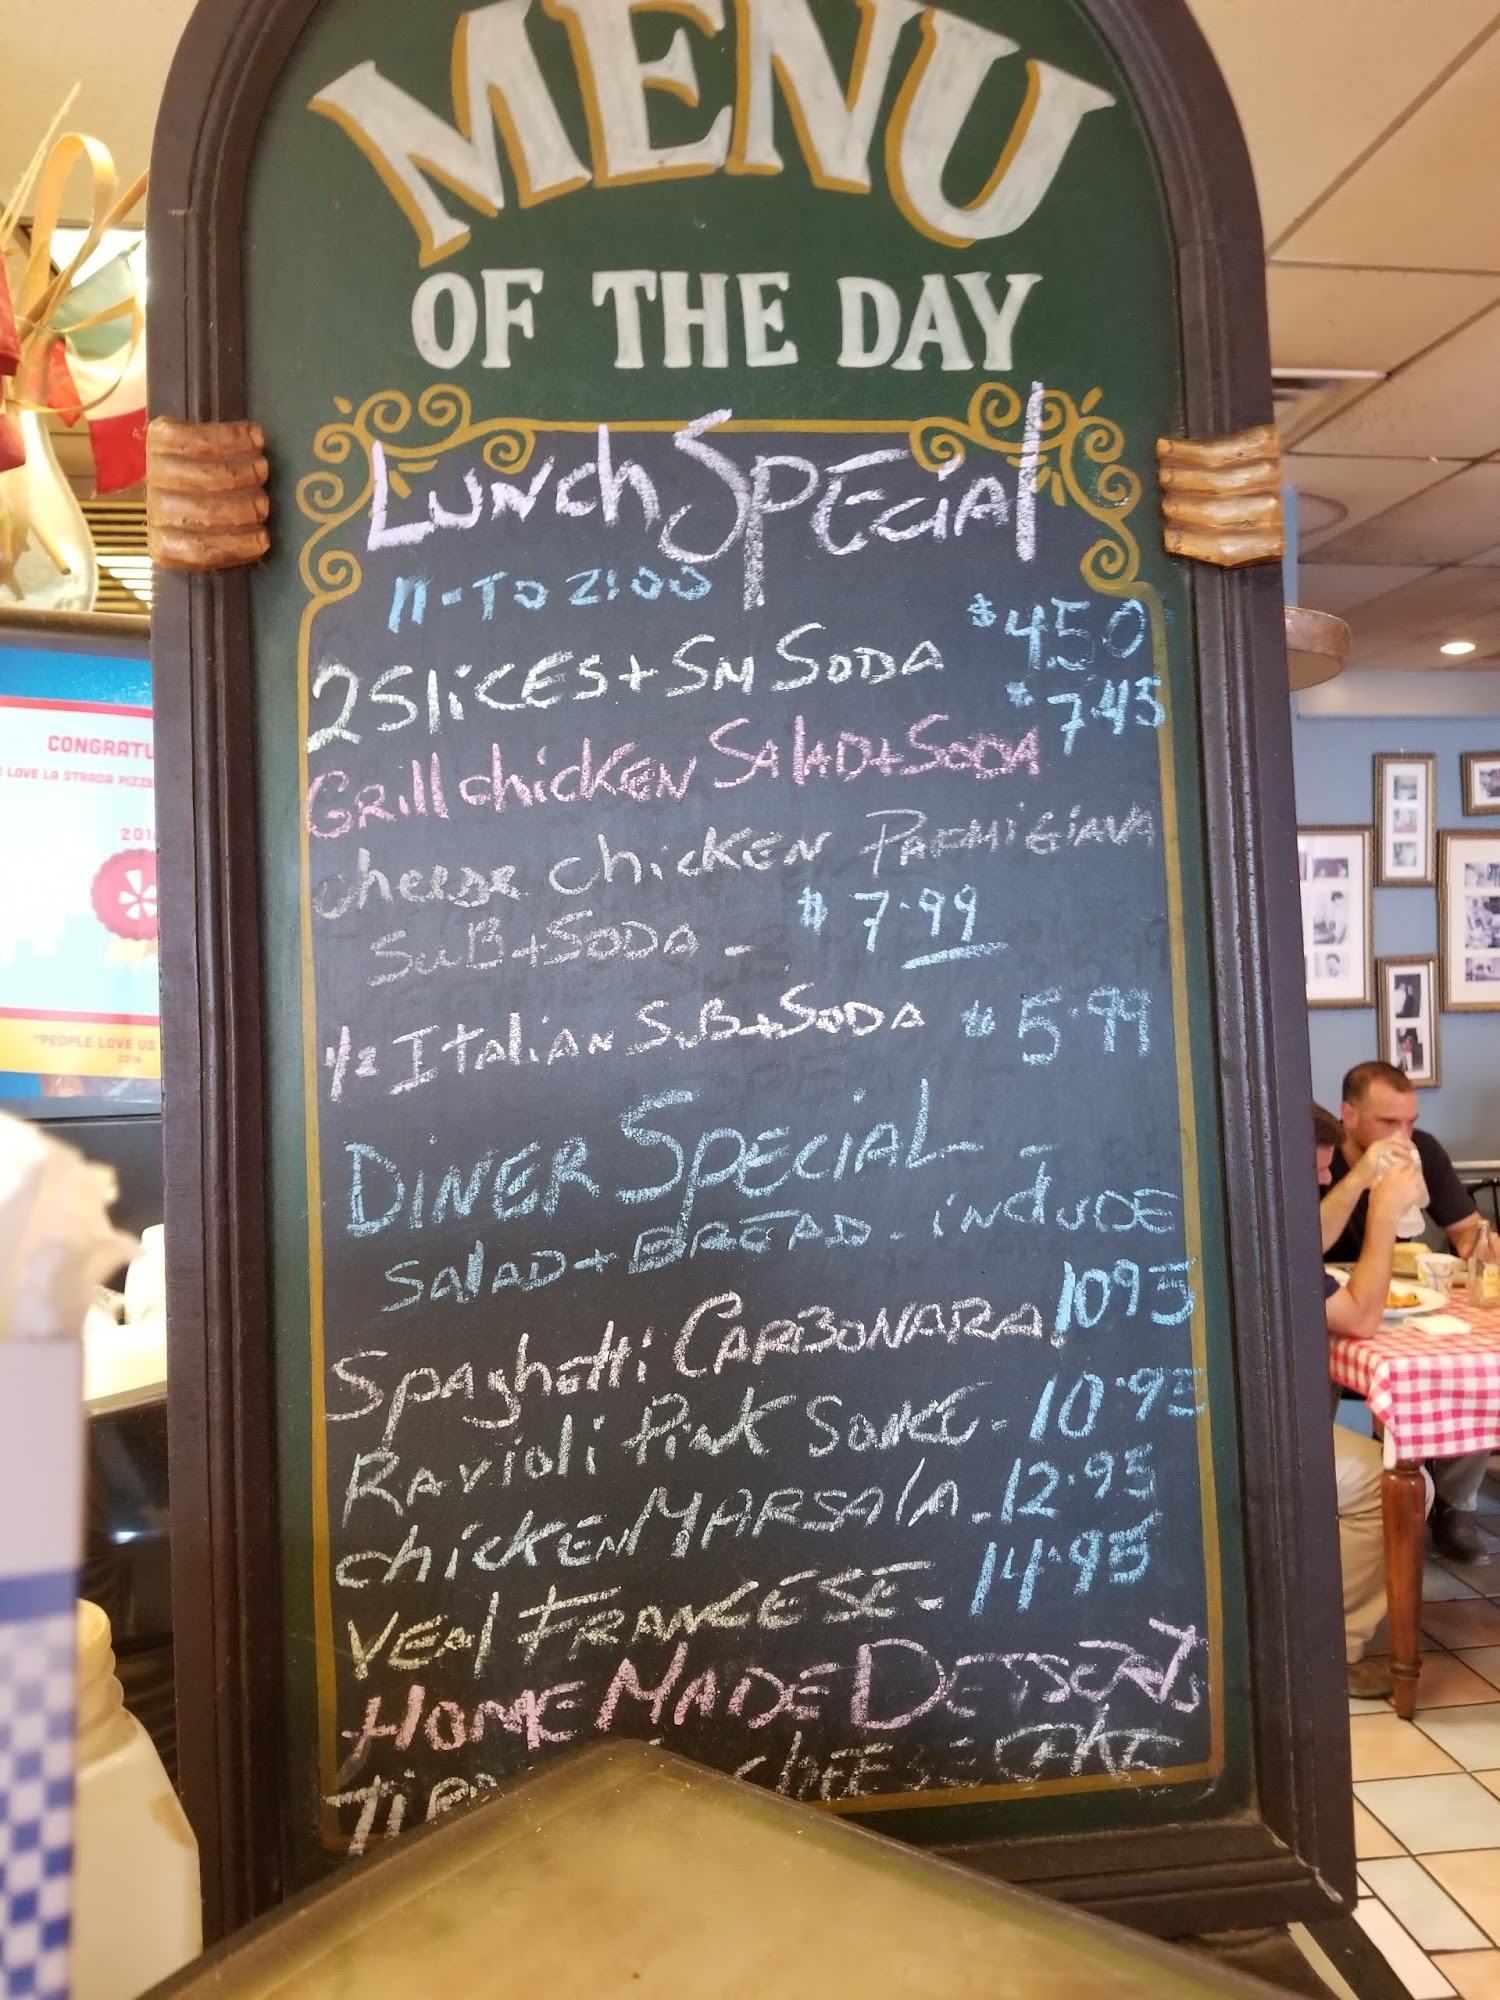 MENU
OF THE DAY
Lunch Special
11-TO 2:00
2 SliCES + SM SODA $450
Grill chicken Salad + Soda $7.45
cheese chicken PARMigiava
SuB + SODA - $7.99
1/2 Italian SuB + SODA $5.99
DiNER SpECiAL - -
SalAD + BREAD - incluDE
Spaghetti CARBONARA 1095
RAvioli Pink Sauke - 10.95
chicken MARSAlA - 12.95
VEAl FRANCESE - 14.95
HOME MADE
CHEESE CAKE
CONGRATU
E LOVE LA STRADA PIZZE
201
"PEOPLE LOVE US
2016